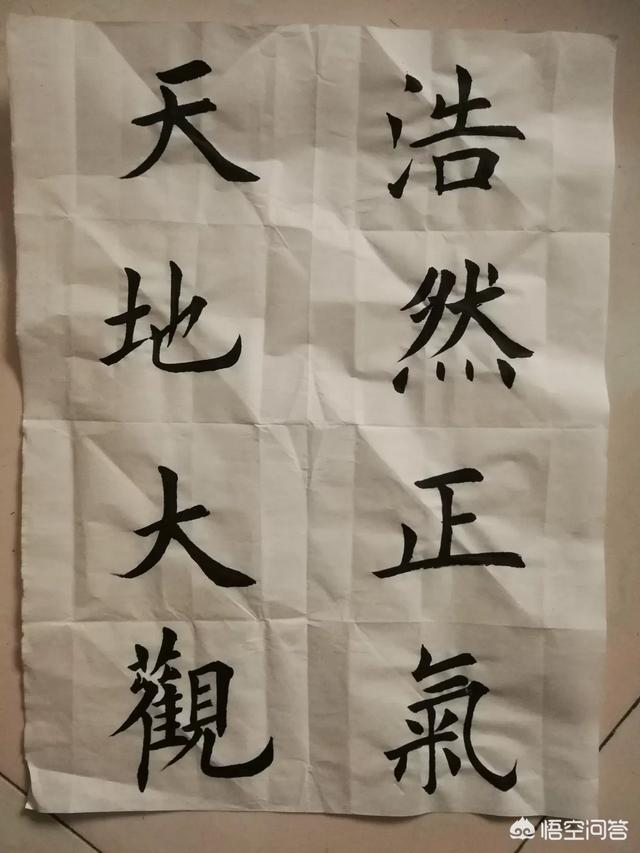 浩然正氣
天地大觀
悟空问答